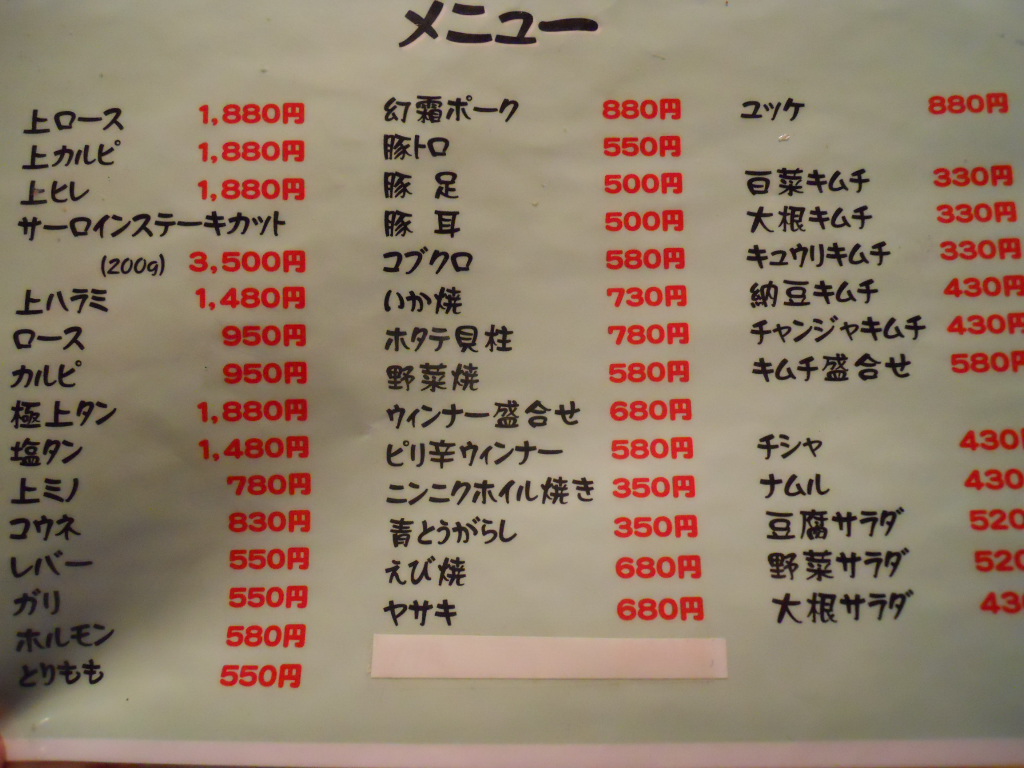 メニュー
上ロース 1,880円
上カルビ 1,880円
上ヒレ 1,880円
サーロインステーキカット
(200g) 3,500円
上ハラミ 1,480円
ロース 950円
カルビ 950円
極上タン 1,880円
塩タン 1,480円
上ミノ 780円
コウネ 830円
レバー 550円
ガリ 550円
ホルモン 580円
とりもも 550円
幻霜ポーク 880円
豚トロ 550円
豚足 500円
豚耳 500円
コブクロ 580円
いか焼 730円
ホタテ貝柱 780円
野菜焼 580円
ウィンナー盛合せ 680円
ピリ辛ウィンナー 580円
ニンニクホイル焼き 350円
青とうがらし 350円
えび焼 680円
ヤサキ 680円
ユッケ 880円
白菜キムチ 330円
大根キムチ 330円
キュウリキムチ 330円
納豆キムチ 430円
チャンジャキムチ 430円
キムチ盛合せ 580円
チシャ 430円
ナムル 430
豆腐サラダ 520
野菜サラダ 520
大根サラダ 43